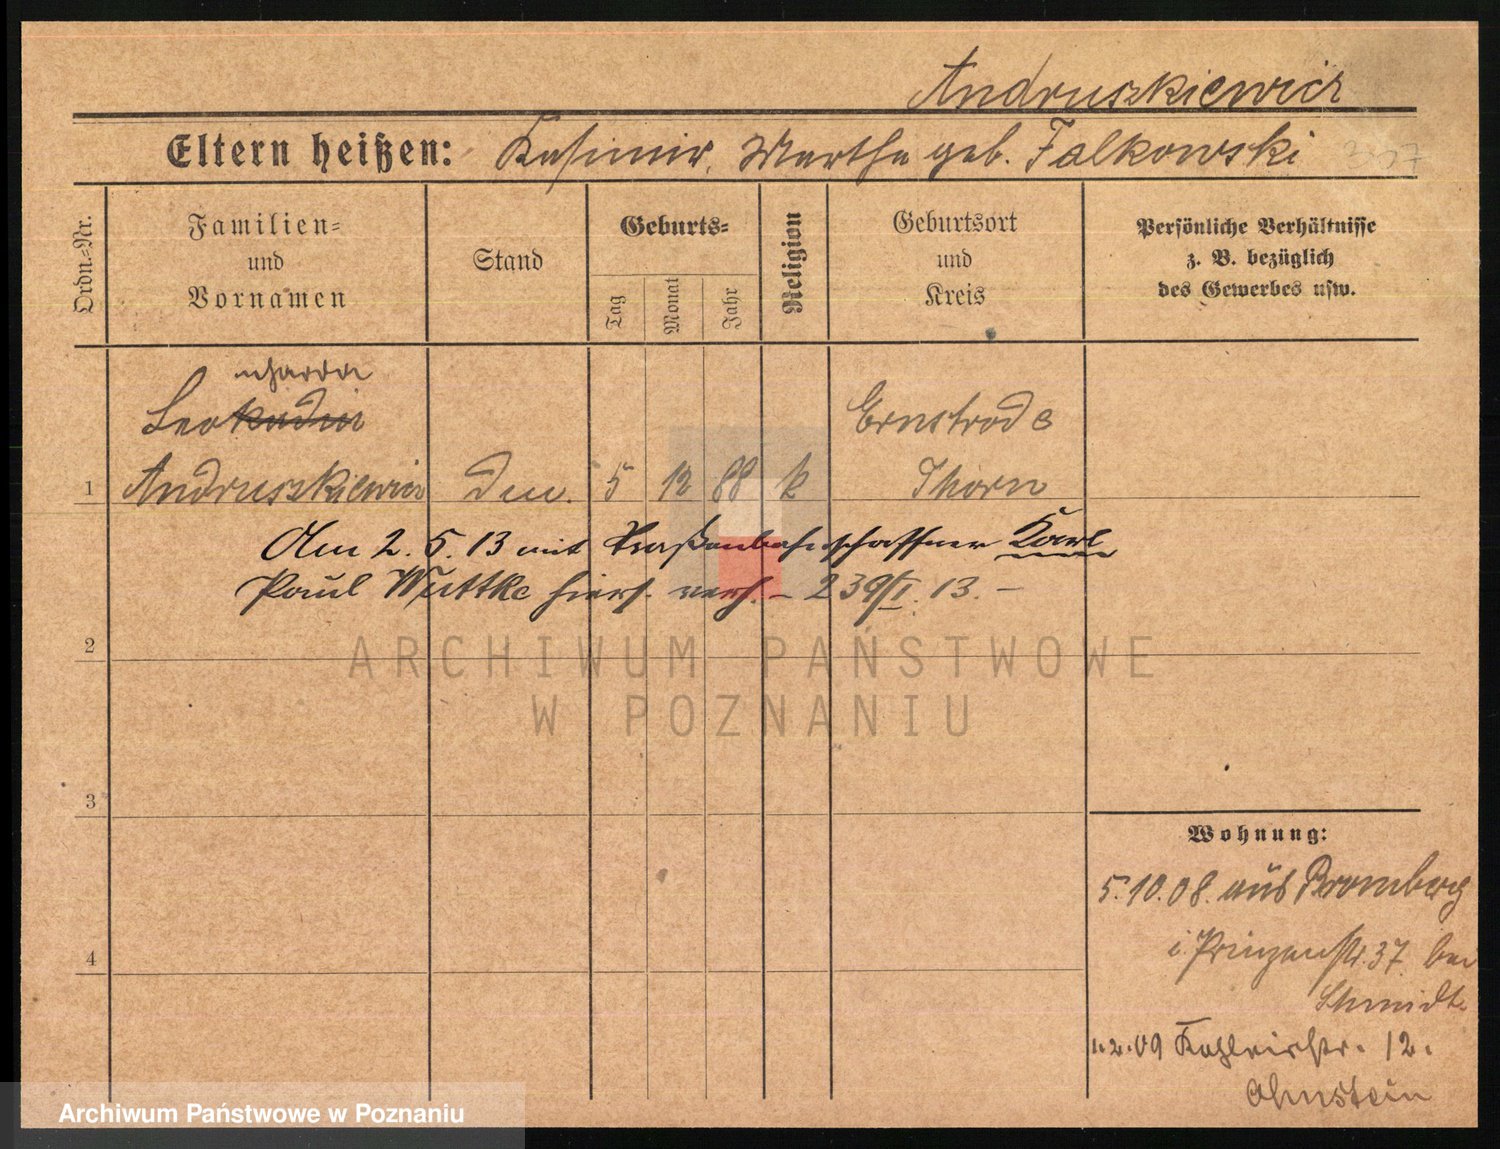 Andruszkiewicz
Eltern heißen: Kasimir, Martha geb. Falkowski
Ordn.-Nr.
Familien-
und
Vornamen
Stand
Geburts-
Tag
Monat
Jahr
Religion
Geburtsort
und
Kreis
Persönliche Verhältnisse
z. B. bezüglich
des Gewerbes usw.
nharda
Leokadia
Ernstrode
1 Andruszkiewicz 5 12 88 k Thorn
Am 2. 5. 13 mit Straßenbahnschaffner Karl
Paul Wuttke hiers. verh. - 239/I. 13. -
2
ARCHIWUM PAŃSTWOWE
W POZNANIU
3
4
Wohnung:
5.10.08. aus Bromberg
i. Prinzenstr. 37 bei
Schmidt
2.09 12.
Ohnstein
Archiwum Państwowe w Poznaniu